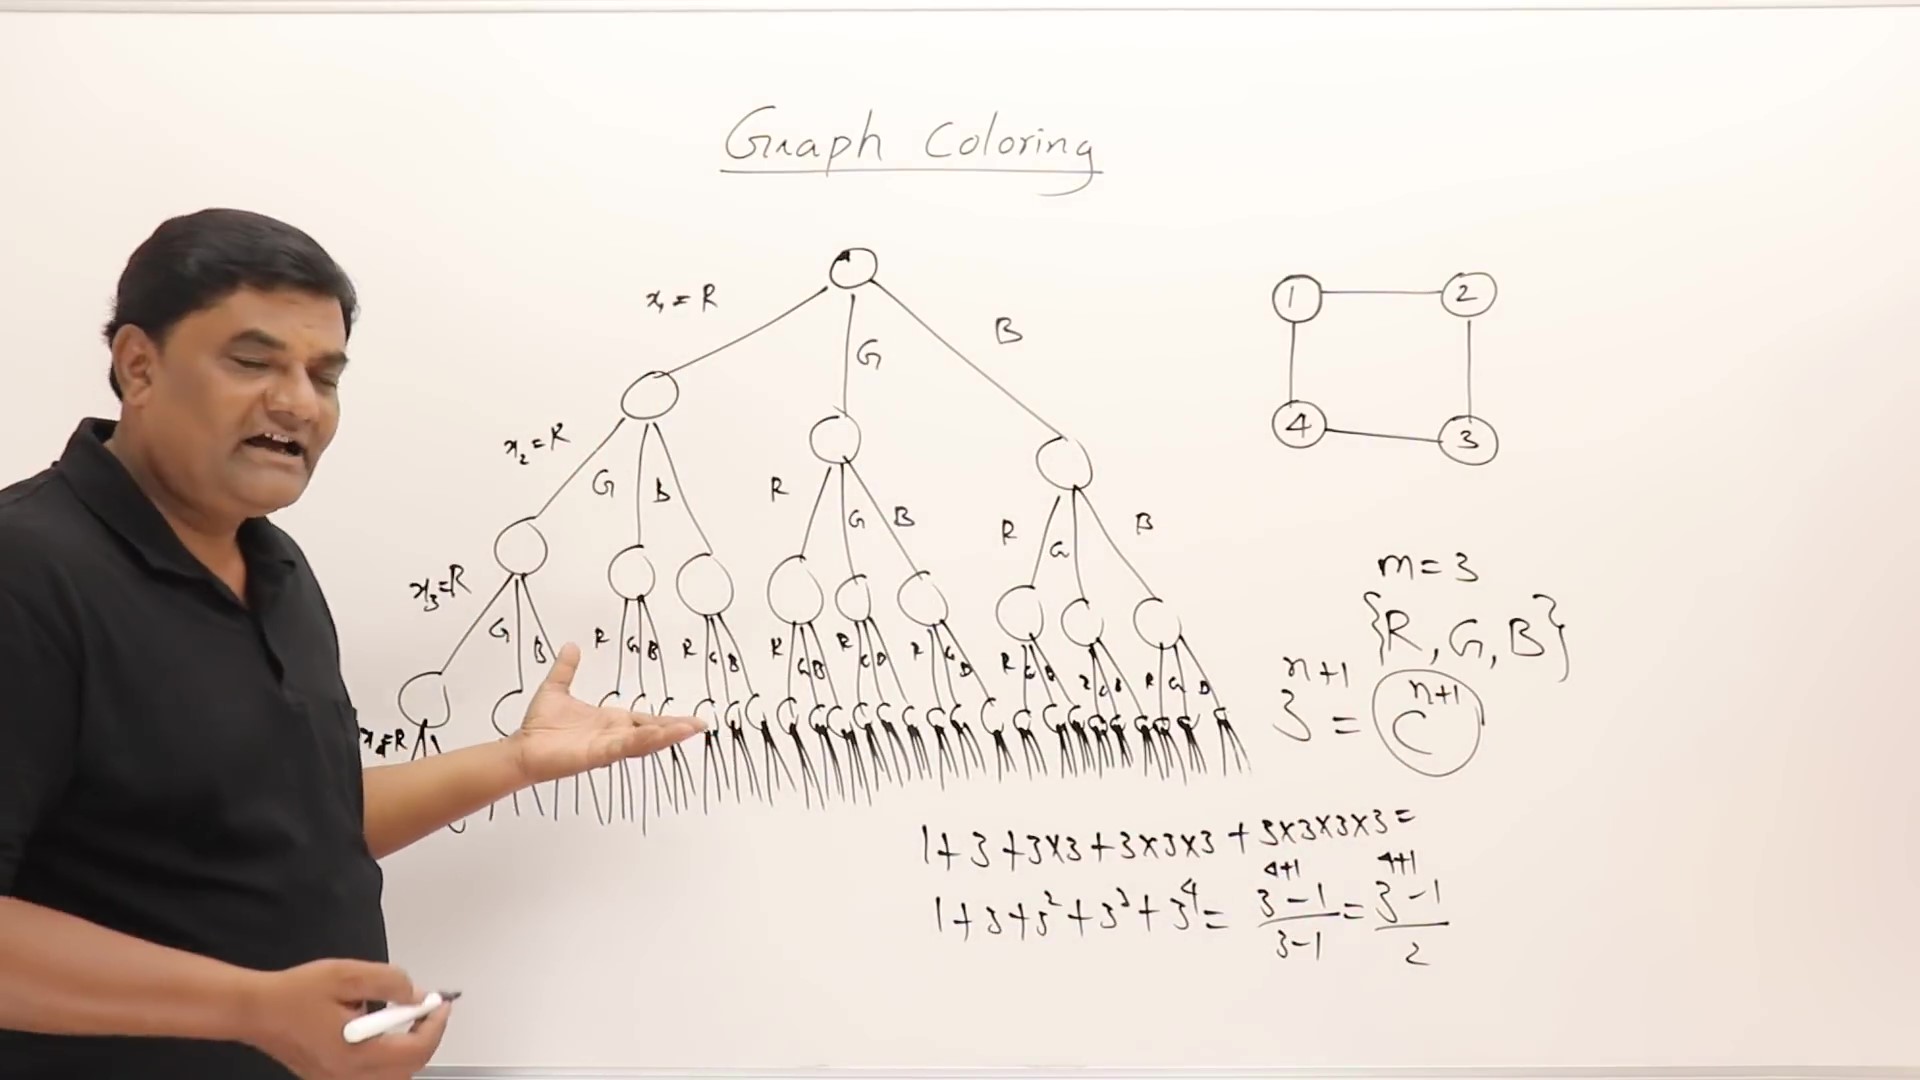 Graph Coloring
x₁ = R
G
B
x₂ = R
G
B
R
G
B
R
G
B
x₃=R
G
B
R G B
R G B
R G B
R G B
R G B
R G B
R G B
R G B
x₄=R
1
2
4
3
m = 3
{R, G, B}
3ⁿ⁺¹ = Cⁿ⁺¹
1+3+3×3+3×3×3+3×3×3×3=
1+3+3²+3³+3⁴= 3⁴⁺¹-1/3-1 = 3⁴⁺¹-1/2